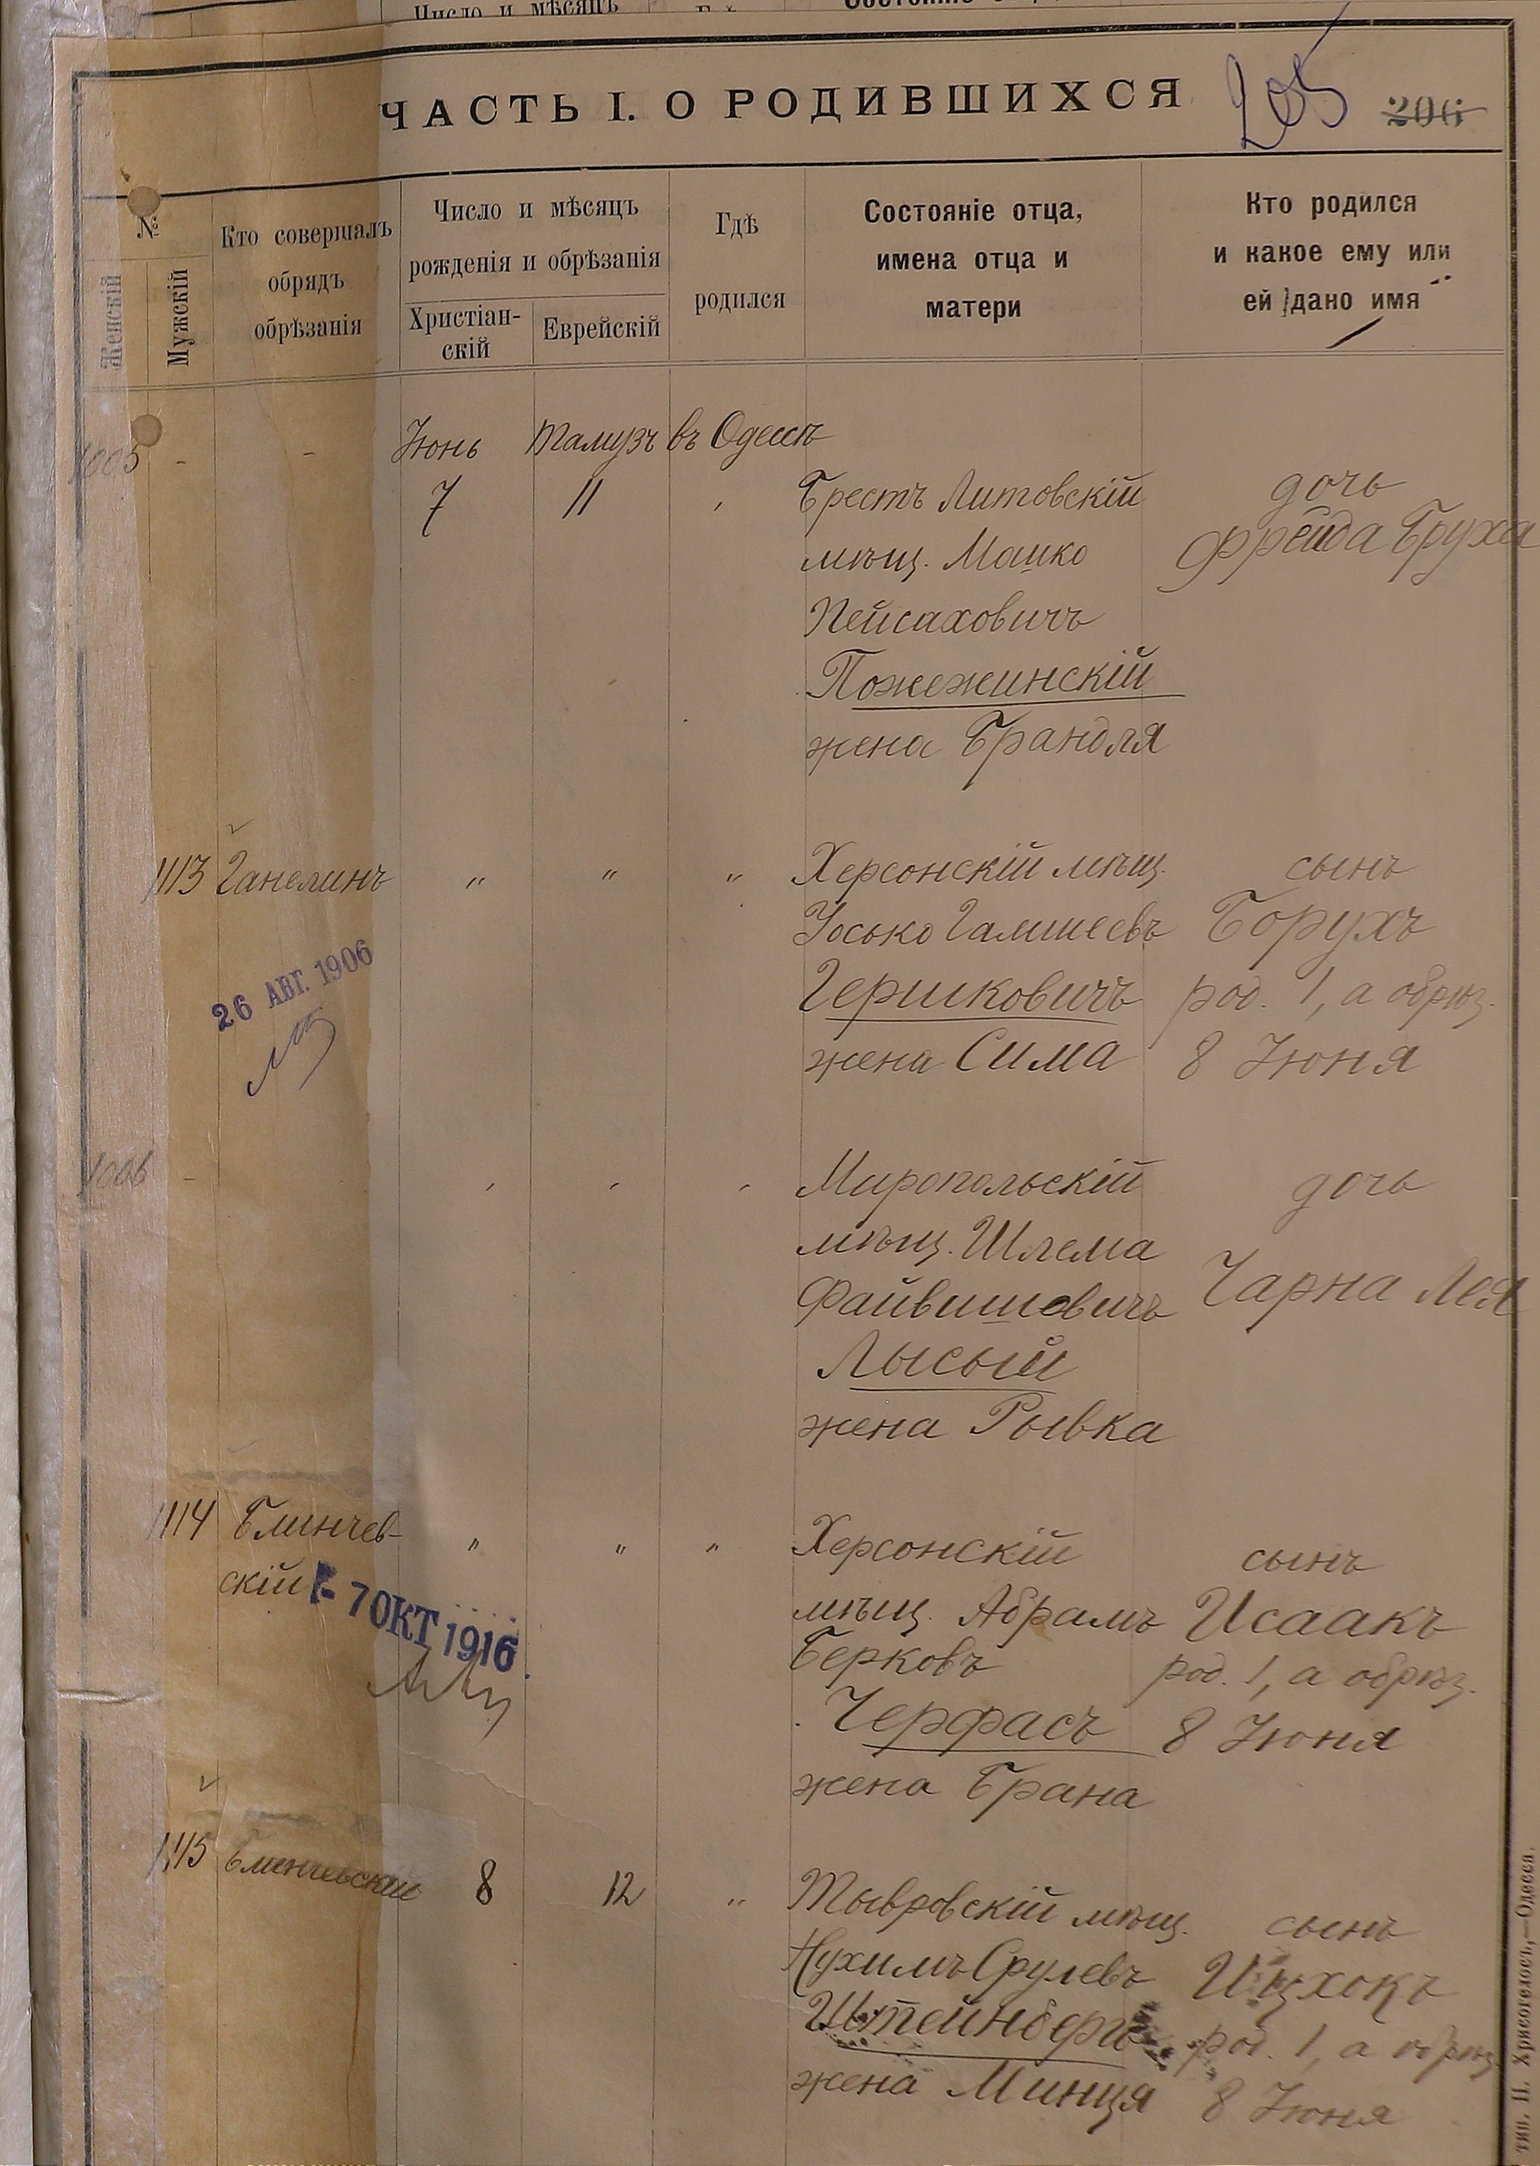 Число и мѣсяцъ
ЧАСТЬ I. О РОДИВШИХСЯ
205 206
№
Женскій
Мужскій
Кто совершалъ
обрядъ
обрѣзанія
Число и мѣсяцъ
рожденія и обрѣзанія
Христіан-
скій
Еврейскій
Гдѣ
родился
Состояніе отца,
имена отца и
матери
Кто родился
и какое ему или
ей дано имя
Іюнь Тамузъ въ Одессѣ
1005 - -
7 11 Брестъ Литовскій дочь
мѣщ. Мошко Фрейда Бруха
Пейсаховичъ
Пожежинскій
жена Брандля
1113 Ганелинъ " " " Херсонскій мѣщ. сынъ
Іосько Гамшеевъ Борухъ
26 АВГ. 1906
Гершковичъ род. 1, а обрѣз.
жена Сима 8 Іюня
1006 - Миропольскій дочь
мѣщ. Шлема
Файвишевичъ Чарна Лея
Лысый
жена Рывка
1114 Блинчев- " " " Херсонскій сынъ
скій
- 7 ОКТ 1916
мѣщ. Абрамъ Исаакъ
Берковъ род. 1, а обрѣз.
Черфасъ 8 Іюня
жена Брана
1115 Блинчевскій 8 12 " Тывровскій мѣщ. сынъ
Нухимъ Срулевъ Ицхокъ
Штейнбергъ род. 1, а обрѣз.
жена Минця 8 Іюня
тип. П. Хрисогелосъ,—Одесса.